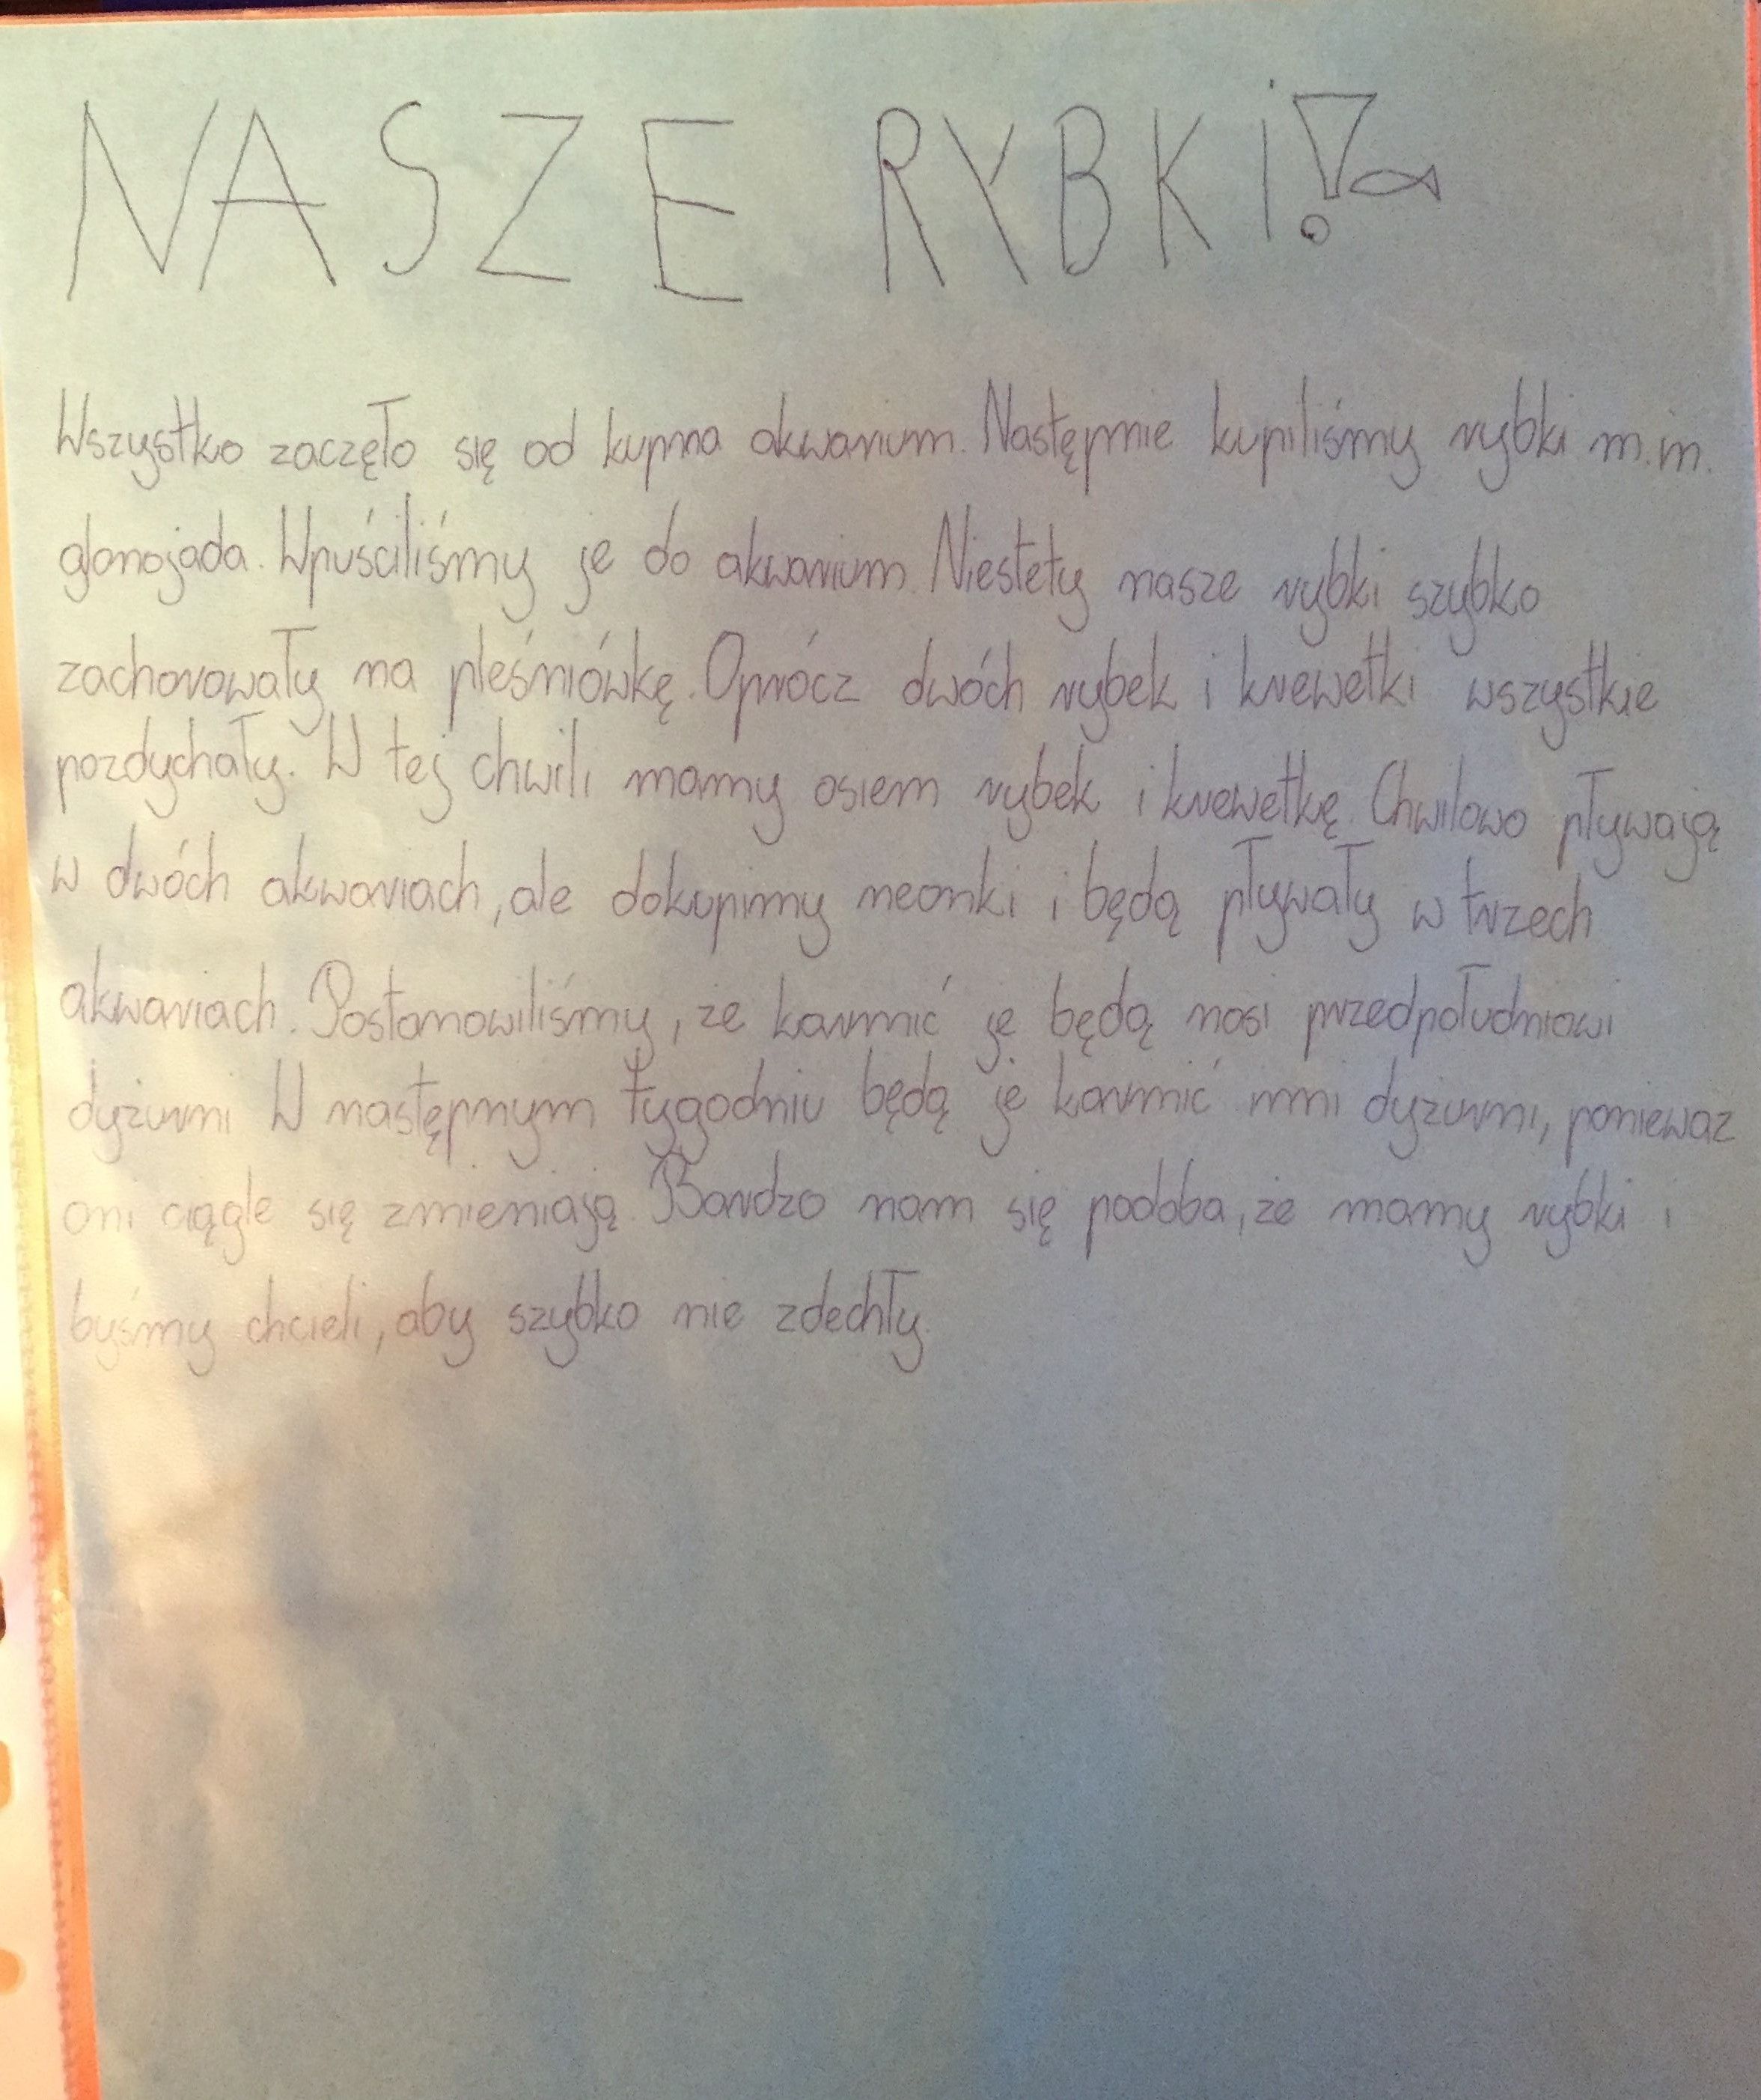 NASZE RYBKi!
Wszystko zaczęło się od kupna akwarium. Następnie kupiliśmy rybki m.in.
glonojada. Wpuściliśmy je do akwarium. Niestety nasze rybki szybko
zachorowały na pleśniówkę. Oprócz dwóch rybek i krewetki wszystkie
pozdychały. W tej chwili mamy osiem rybek i krewetkę. Chwilowo pływają
w dwóch akwariach, ale dokupimy neonki i będą pływały w trzech
akwariach. Postanowiliśmy, że karmić je będą nasi przedpołudniowi
dyżurni W następnym tygodniu będą je karmić inni dyżurni, ponieważ
oni ciągle się zmieniają. Bardzo nam się podoba, że mamy rybki i
byśmy chcieli, aby szybko nie zdechły.